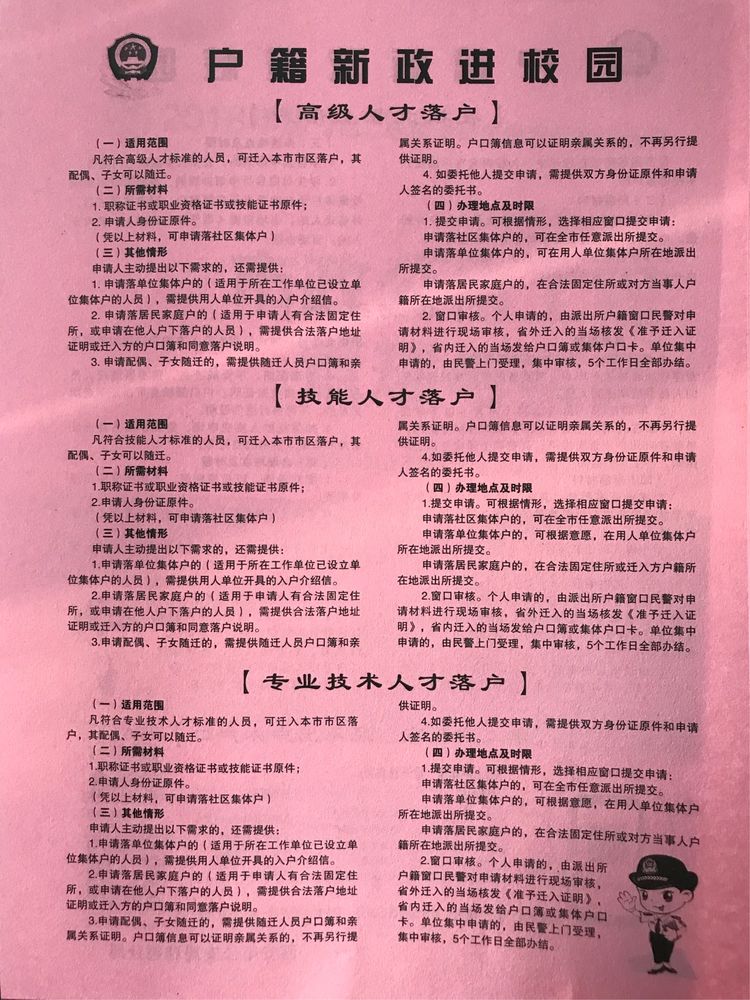 户籍新政进校园
【高级人才落户】
（一）适用范围
凡符合高级人才标准的人员，可迁入本市市区落户，其
配偶、子女可以随迁。
（二）所需材料
1. 职称证书或职业资格证书或技能证书原件；
2. 申请人身份证原件。
（凭以上材料，可申请落社区集体户）
（三）其他情形
申请人主动提出以下需求的，还需提供：
1. 申请落单位集体户的（适用于所在工作单位已设立单
位集体户的人员），需提供用人单位开具的入户介绍信。
2. 申请落居民家庭户的（适用于申请人有合法固定住
所，或申请在他人户下落户的人员），需提供合法落户地址
证明或迁入方的户口簿和同意落户说明。
3. 申请配偶、子女随迁的，需提供随迁人员户口簿和亲
属关系证明。户口簿信息可以证明亲属关系的，不再另行提
供证明。
4. 如委托他人提交申请，需提供双方身份证原件和申请
人签名的委托书。
（四）办理地点及时限
1. 提交申请。可根据情形，选择相应窗口提交申请：
申请落社区集体户的，可在全市任意派出所提交。
申请落单位集体户的，可在用人单位集体户所在地派出
所提交。
申请落居民家庭户的，在合法固定住所或对方当事人户
籍所在地派出所提交。
2. 窗口审核。个人申请的，由派出所户籍窗口民警对申
请材料进行现场审核，省外迁入的当场核发《准予迁入证
明》，省内迁入的当场发给户口簿或集体户口卡。单位集中
申请的，由民警上门受理，集中审核，5个工作日全部办结。
【技能人才落户】
（一）适用范围
凡符合技能人才标准的人员，可迁入本市市区落户，其
配偶、子女可以随迁。
（二）所需材料
1.职称证书或职业资格证书或技能证书原件；
2.申请人身份证原件。
（凭以上材料，可申请落社区集体户）
（三）其他情形
申请人主动提出以下需求的，还需提供：
1.申请落单位集体户的（适用于所在工作单位已设立单
位集体户的人员），需提供用人单位开具的入户介绍信。
2.申请落居民家庭户的（适用于申请人有合法固定住
所，或申请在他人户下落户的人员），需提供合法落户地址
证明或迁入方的户口簿和同意落户说明。
3.申请配偶、子女随迁的，需提供随迁人员户口簿和亲
属关系证明。户口簿信息可以证明亲属关系的，不再另行提
供证明。
4.如委托他人提交申请，需提供双方身份证原件和申请
人签名的委托书。
（四）办理地点及时限
1.提交申请。可根据情形，选择相应窗口提交申请：
申请落社区集体户的，可在全市任意派出所提交。
申请落单位集体户的，可根据意愿，在用人单位集体户
所在地派出所提交。
申请落居民家庭户的，在合法固定住所或迁入方户籍所
在地派出所提交。
2.窗口审核。个人申请的，由派出所户籍窗口民警对申
请材料进行现场审核，省外迁入的当场核发《准予迁入证
明》，省内迁入的当场发给户口簿或集体户口卡。单位集中
申请的，由民警上门受理，集中审核，5个工作日全部办结。
【专业技术人才落户】
（一）适用范围
凡符合专业技术人才标准的人员，可迁入本市市区落
户，其配偶、子女可以随迁。
（二）所需材料
1.职称证书或职业资格证书或技能证书原件；
2.申请人身份证原件。
（凭以上材料，可申请落社区集体户）
（三）其他情形
申请人主动提出以下需求的，还需提供：
1.申请落单位集体户的（适用于所在工作单位已设立单
位集体户的人员），需提供用人单位开具的入户介绍信。
2.申请落居民家庭户的（适用于申请人有合法固定住
所，或申请在他人户下落户的人员），需提供合法落户地址
证明或迁入方的户口簿和同意落户说明。
3.申请配偶、子女随迁的，需提供随迁人员户口簿和亲
属关系证明。户口簿信息可以证明亲属关系的，不再另行提
供证明。
4.如委托他人提交申请，需提供双方身份证原件和申请人
签名的委托书。
（四）办理地点及时限
1.提交申请。可根据情形，选择相应窗口提交申请：
申请落社区集体户的，可在全市任意派出所提交。
申请落单位集体户的，可根据意愿，在用人单位集体户
所在地派出所提交。
申请落居民家庭户的，在合法固定住所或对方当事人户
籍所在地派出所提交。
2.窗口审核。个人申请的，由派出所
户籍窗口民警对申请材料进行现场审核，
省外迁入的当场核发《准予迁入证明》，
省内迁入的当场发给户口簿或集体户口
卡。单位集中申请的，由民警上门受理，
集中审核，5个工作日全部办结。